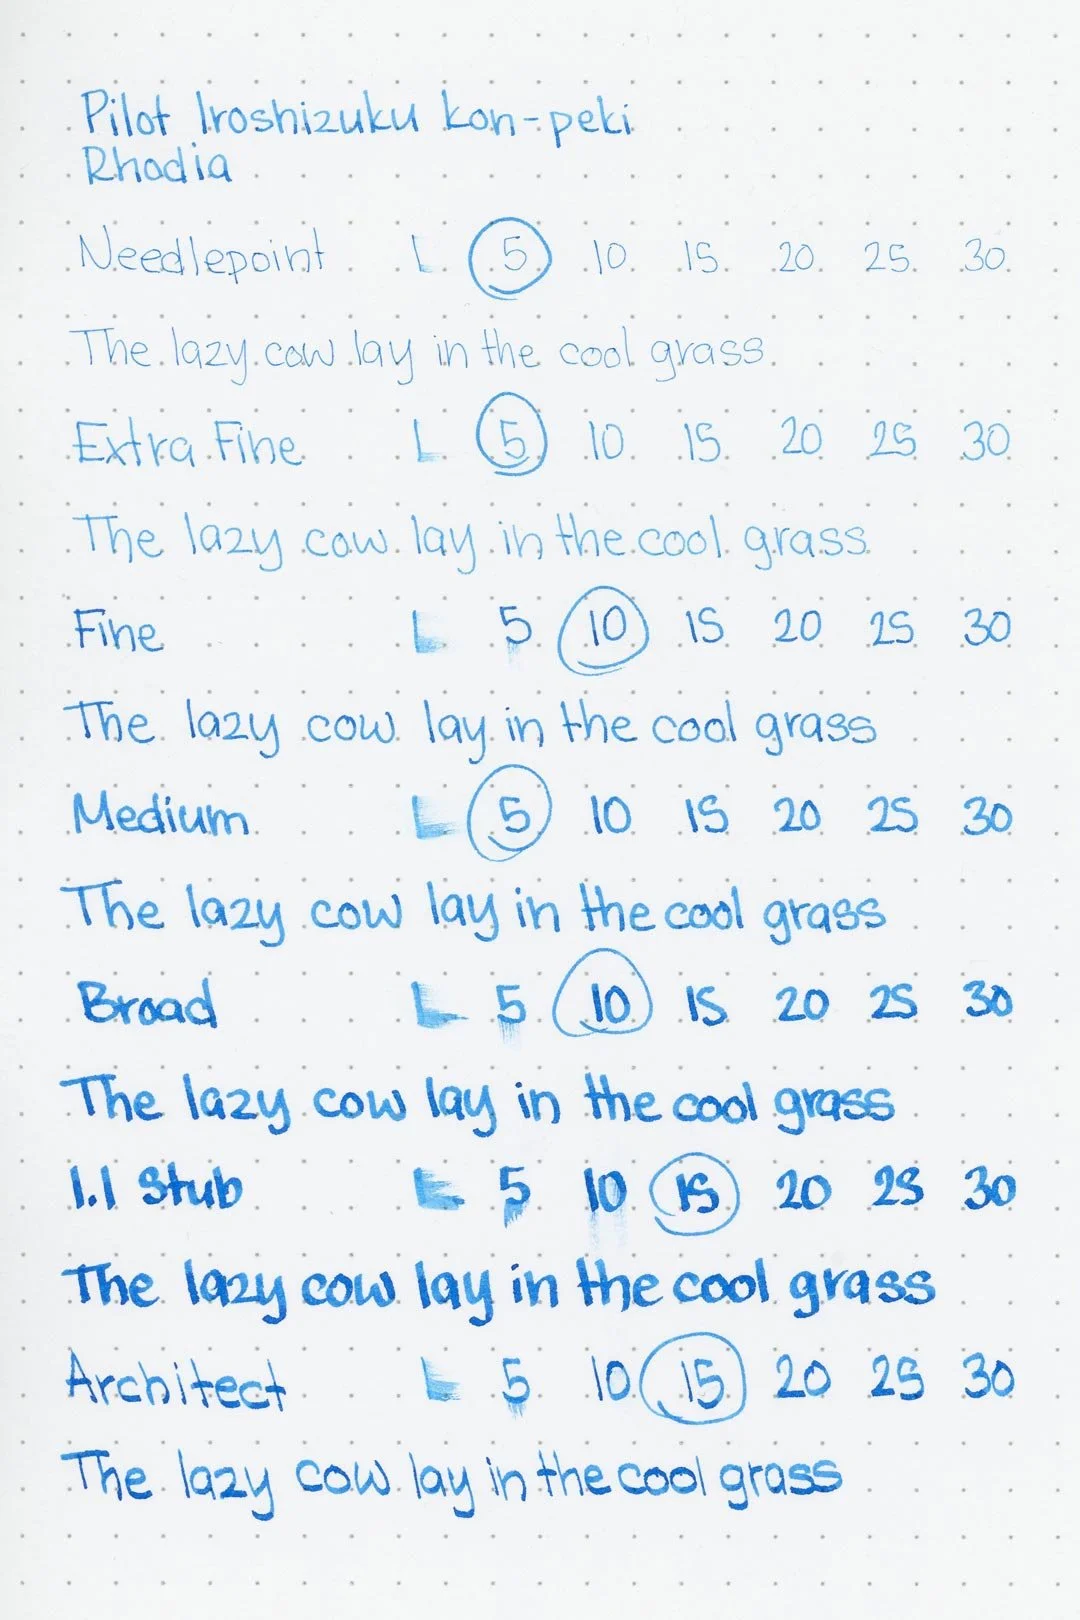 Pilot Iroshizuku kon-peki
Rhodia
Needlepoint L 5 10 15 20 25 30
The lazy cow lay in the cool grass.
Extra Fine L 5 10 15 20 25 30
The lazy cow lay in the cool grass
Fine L 5 10 15 20 25 30
The lazy cow lay in the cool grass
Medium L 5 10 15 20 25 30
The lazy cow lay in the cool grass
Broad L 5 10 15 20 25 30
The lazy cow lay in the cool grass
1.1 Stub L 5 10 15 20 25 30
The lazy cow lay in the cool grass
Architect L 5 10 15 20 25 30
The lazy cow lay in the cool grass